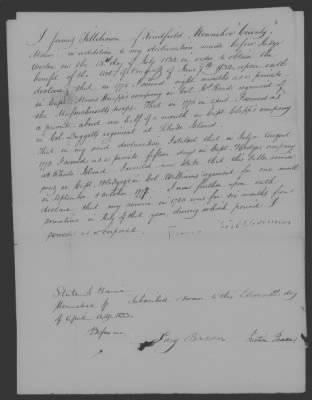 I James Tillebrown of Readfield Kennebec County
Maine in addition to my declaration made before Judge
Weston on the 13th day of July 1832 in order to obtain the
benefit of the act of Congress of June 7th 1832, upon oath
declare, that in 1775 I served eight months as a private
in Capt Moses Knapp's company in Col. regiment of
the Massachusetts troops. That in 1777 in April I served as
a private about one half of a month in Capt. Clapp's company
in Col. Daggett's regiment at Rhode Island.
That in my said declaration I stated that in July & August
1778, I served as a private fifteen days in Capt. Hodges company
at Rhode Island. I would now state that this latter service
was in Capt. Hodges in Col. Williams' regiment for one month
in September & October 1777. I now further upon oath
declare that my service in 1780 was for six months from
sometime in July of that year, during which period I
served as a Corporal.
James
State of Maine
Kennebec ss Subscribed & sworn to this Eleventh day
of April A.D. 1833.
Before me
Justice Peace